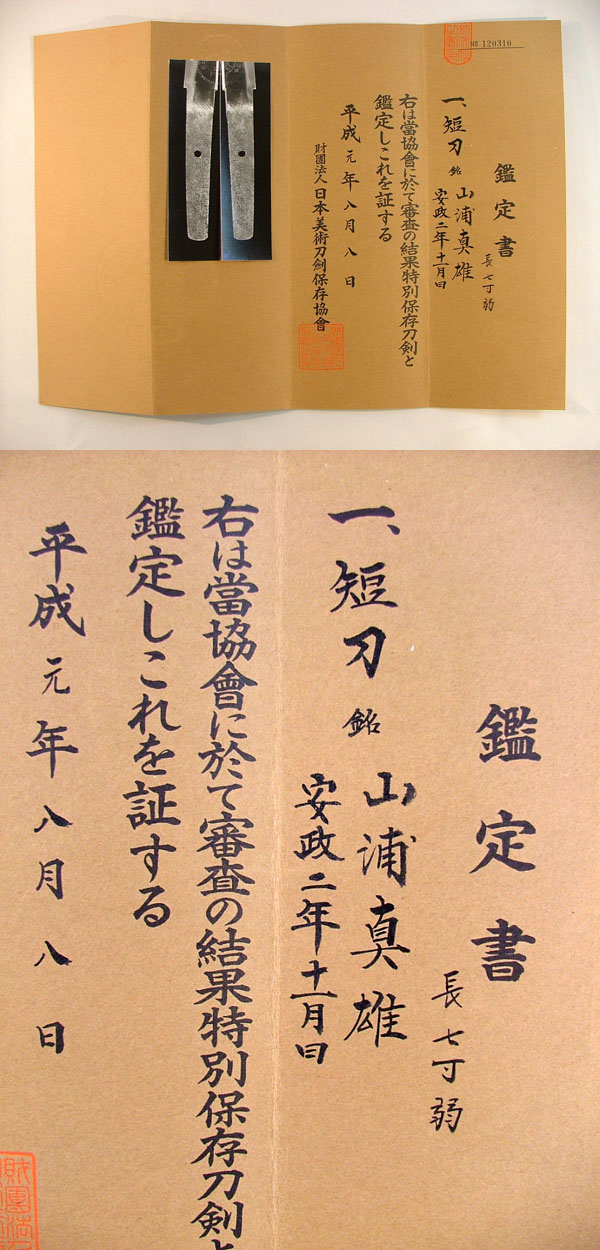 № 120310
鑑定書
長七寸弱
一、短刀 銘 山浦真雄
安政二年十一月日
右は當協會に於て審査の結果特別保存刀剣と
鑑定しこれを証する
平成元年八月八日
財團法人日本美術刀劍保存協會
鑑定書
長七寸弱
一、短刀 銘 山浦真雄
安政二年十一月日
右は當協會に於て審査の結果特別保存刀剣と
鑑定しこれを証する
平成元年八月八日
財團法